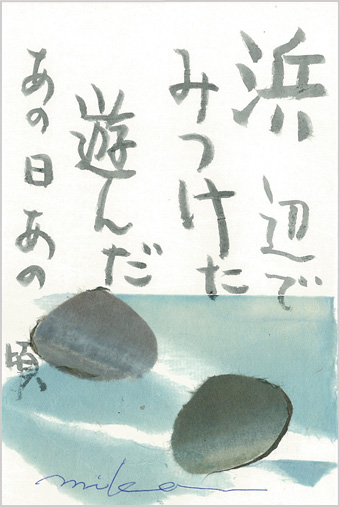 浜辺で
みつけた
遊んだ
あの日あの
頃